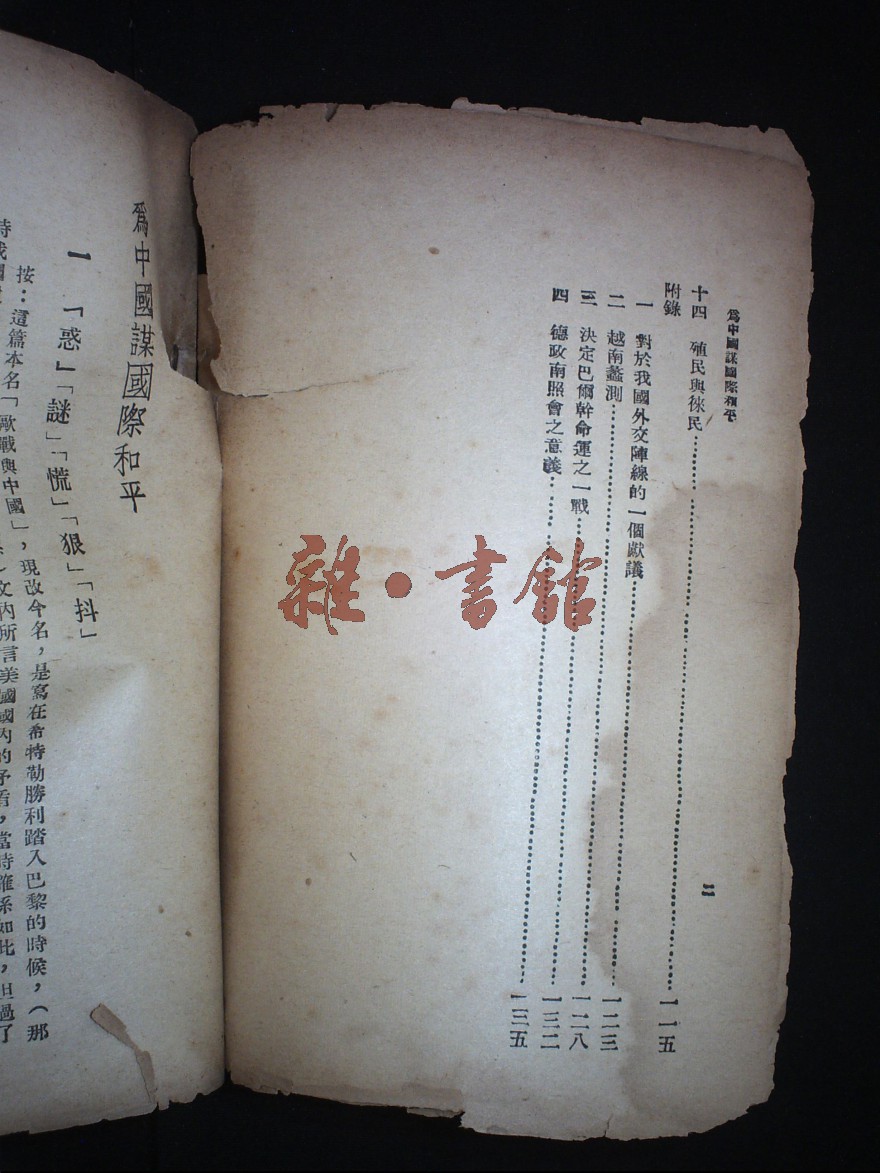 爲中國謀國際和平
二
十四　殖民與徠民……一一五
附錄
一　對於我國外交陣線的一個獻議……一二三
二　越南蠡測……一二八
三　決定巴爾幹命運之一戰……一三二
四　德政南照會之意義……一三五
雜·書館
爲中國謀國際和平
一　「惑」「謎」「慌」「狠」「抖」
按：這篇本名「歐戰與中國」，現改今名，是寫在希特勒勝利踏入巴黎的時候，（那
文內所言美國國內的矛盾，當時確係如此，但過了